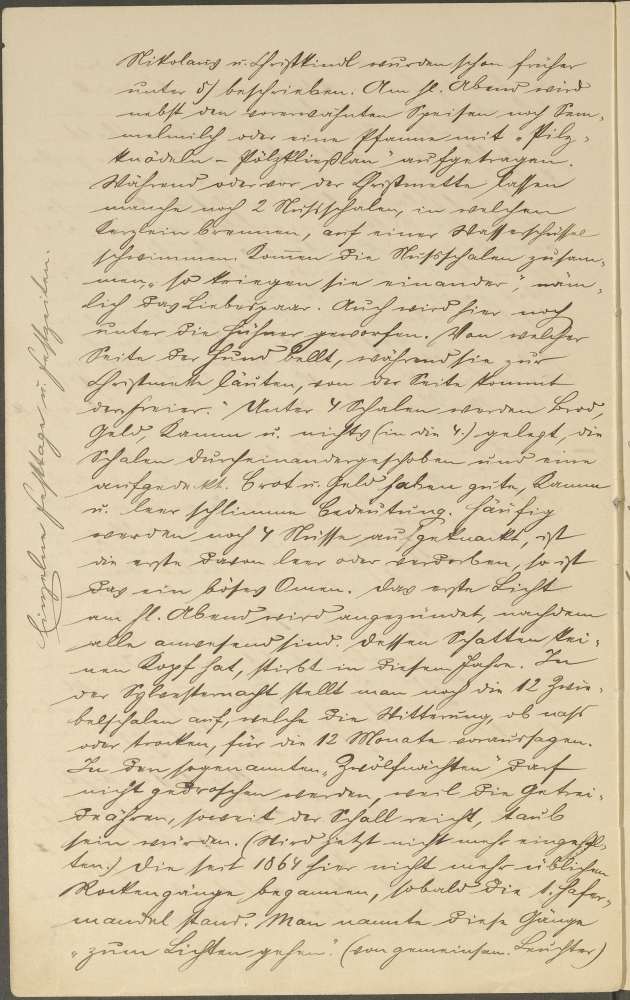 Nikolaus u. Christkindl wurden schon früher
unter 5) beschrieben. Am hl. Abend wird
nebst den vorerwähnten Speisen noch Sem-
melmilch oder eine Pfanne mit „Pilz-
knödeln – aufgetragen.
Während oder vor der Christmette lassen
manche noch 2 Nußschalen, in welchen
Kerzlein brennen, auf einer Wasserschüssel
schwimmen. Kom̅en die Nußschalen zusam-
men, „so kriegen sie einander“, näm-
lich das Liebespaar. Auch wird hier noch
unter die Hühner geworfen. „Von welcher
Seite der Hund bellt, während sie zur
Christmette läuten, von der Seite kommt
der Freier.“ Unter 4 Schalen werden Brod,
Geld, Kamm u. nichts (in die 4.) gelegt, die
Schalen durcheinandergeschoben und eine
aufgedeckt. Brot u. Geld haben gute, Kamm
u. leer schlimme Bedeutung. Häufig
werden noch 4 Nüsse aufgeknackt, ist
die erste davon leer oder verdorben, so ist
das ein böses Omen. Das erste Licht
am hl. Abend wird angezündet, nachdem
alle anwesend sind. Dessen Schatten kei-
nen Kopf hat, stirbt in diesem Jahre. In
der Sylvesternacht stellt man noch die 12 Zwie-
belschalen auf, welche die Witterung, ob naß
oder trocken, für die 12 Monate voraussagen.
In den sogenannten „Zwölfnächten“ darf
nicht gedroschen werden, weil die Getrei-
deähren, soweit der Schall reicht, taub
sein würden. (Wird jetzt nicht mehr eingehal-
ten.) Die seit 1864 hier nicht mehr üblichen
Rockengänge begannen, sobald die 1. Hafer-
mandel stand. Man nannte diese Gänge
„zum Lichten gehen“. (von gemeinsam. Leuchter)
Einzelne Festtage u. Festzeiten.